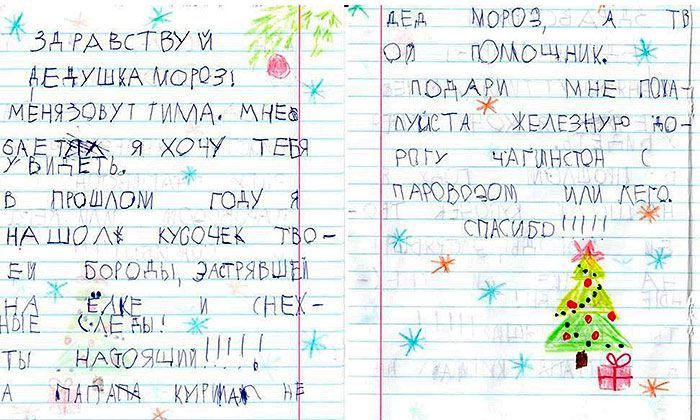 ЗДРАВСТВУЙ
ДЕДУШКА МОРОЗ!
МЕНЯ ЗОВУТ ТИМА. МНЕ 6
БАЕТ Я ХОЧУ ТЕБЯ
УВИДЕТЬ.
В ПРОШЛОМ ГОДУ Я
НАШОЛ КУСОЧЕК ТВО-
ЕЙ БОРОДЫ, ЗАСТРЯВШЕЙ
НА ЁЛКЕ И СНЕЖ-
НЫЕ СЛЕДЫ!
ТЫ НАСОЯЩИЙ!!!!!
А ПАПАПА НЕ
ДЕД МОРОЗ, А ТВ
ОЙ ПОМОЩНИК.
ПОДАРИ МНЕ ПОЖА-
ЛУЙСТА ЖЕЛЕЗНУЮ ДО-
РОГУ ЧАГИНСТОН С
ПАРОВОЗОМ ИЛИ ЛЕГО.
СПАСИБО!!!!!